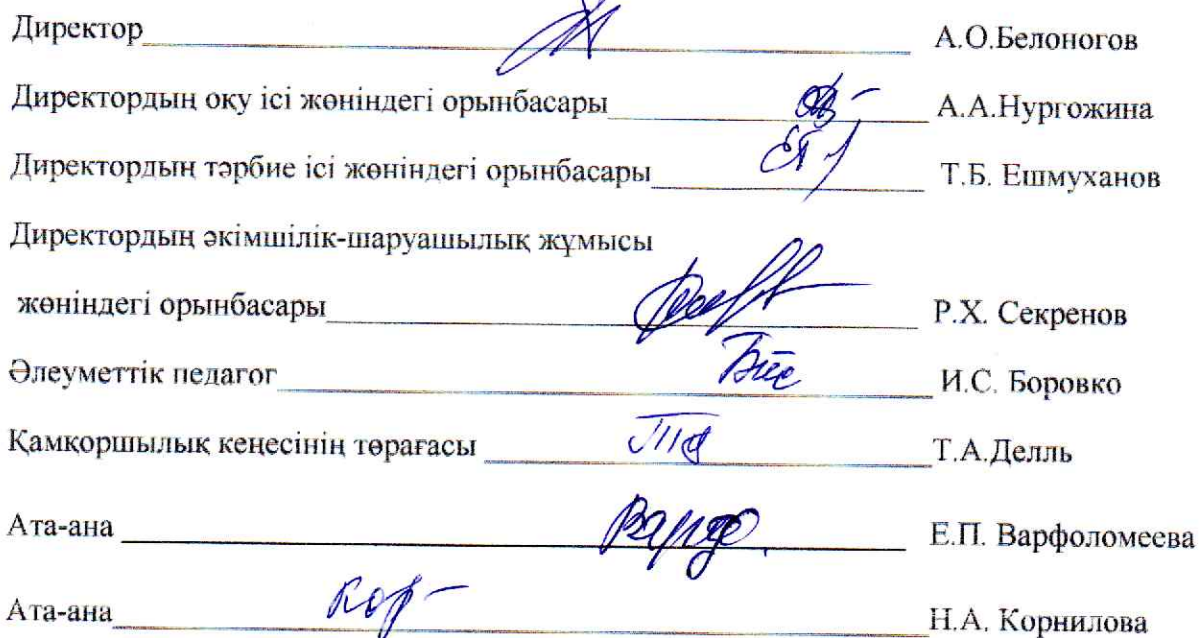 Директор А.О.Белоногов
Директордың оқу ісі жөніндегі орынбасары А.А.Нургожина
Директордың тәрбие ісі жөніндегі орынбасары Т.Б. Ешмуханов
Директордың әкімшілік-шаруашылық жұмысы
жөніндегі орынбасары Р.Х. Секренов
Әлеуметтік педагог И.С. Боровко
Қамқоршылық кеңесінің төрағасы Т.А.Делль
Ата-ана Е.П. Варфоломеева
Ата-ана Н.А. Корнилова